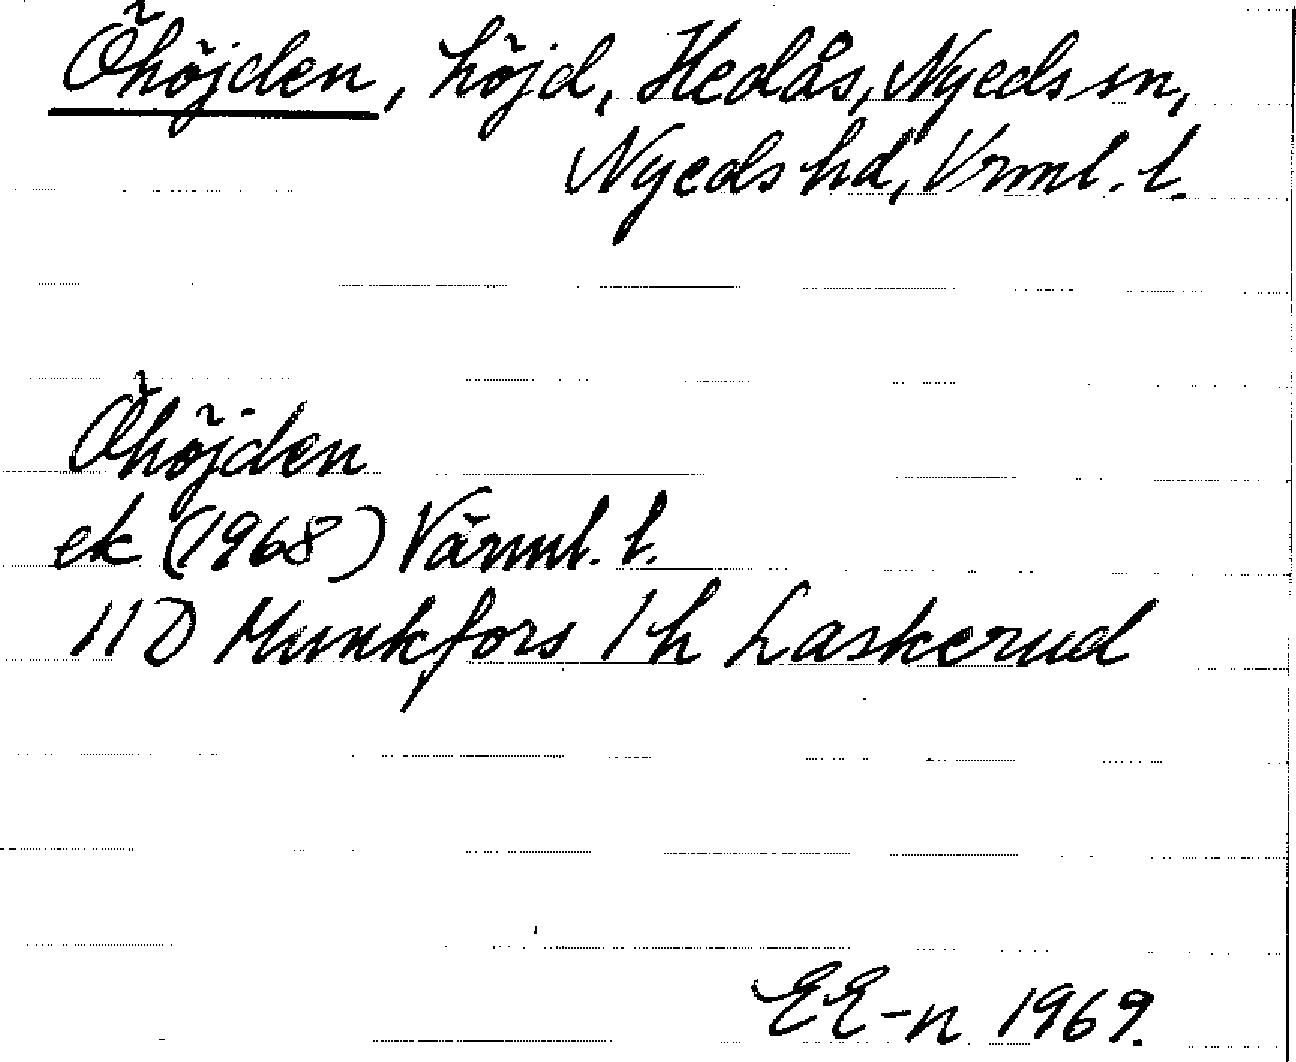 Öhöjden, höjd, Hedås, Nyeds sn,
Nyeds hd, Vrml. l.
Öhöjden
ek (1968) Värml. l.
11D Munkfors 1h Laskerud
EE-n 1969.